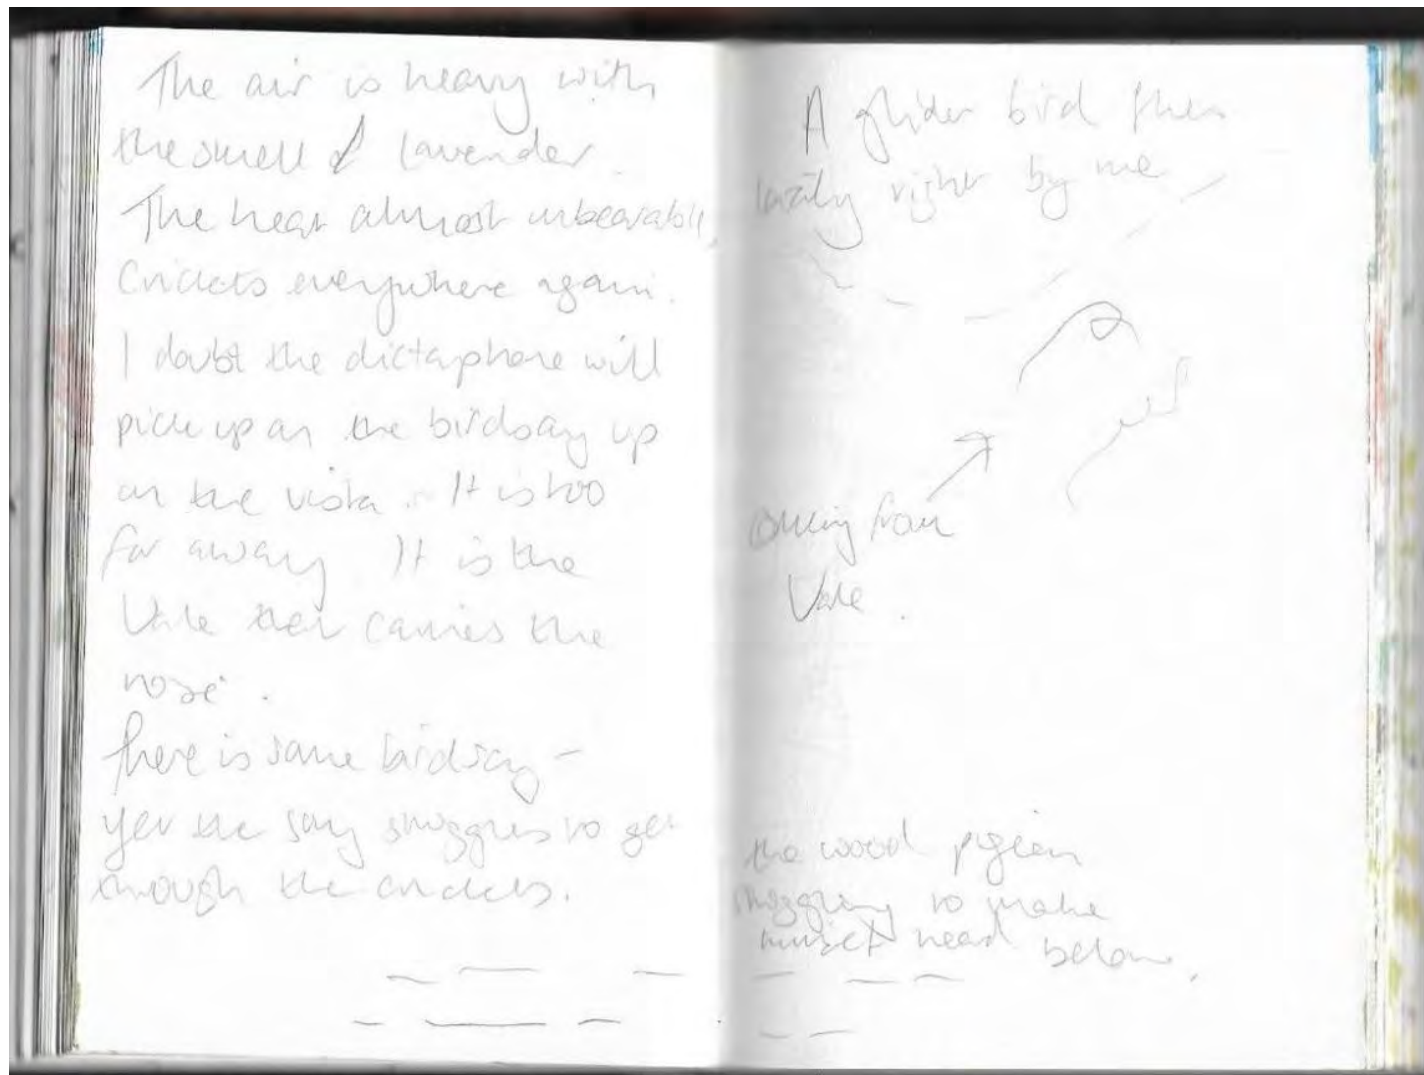 The air is heavy with
the smell of lavender.
The heat almost unbearable,
Crickets everywhere again.
I doubt the dictaphone will
pick up on the birdsong up
on the vista. It is too
far away It is the
Vale that carries the
noise.
There is some birdsong -
yet the song struggles to get
through the crickets.
A glider bird flies
lazily right by me
coming from
Vale.
the wood pigeon
struggling to make
himself heard below.